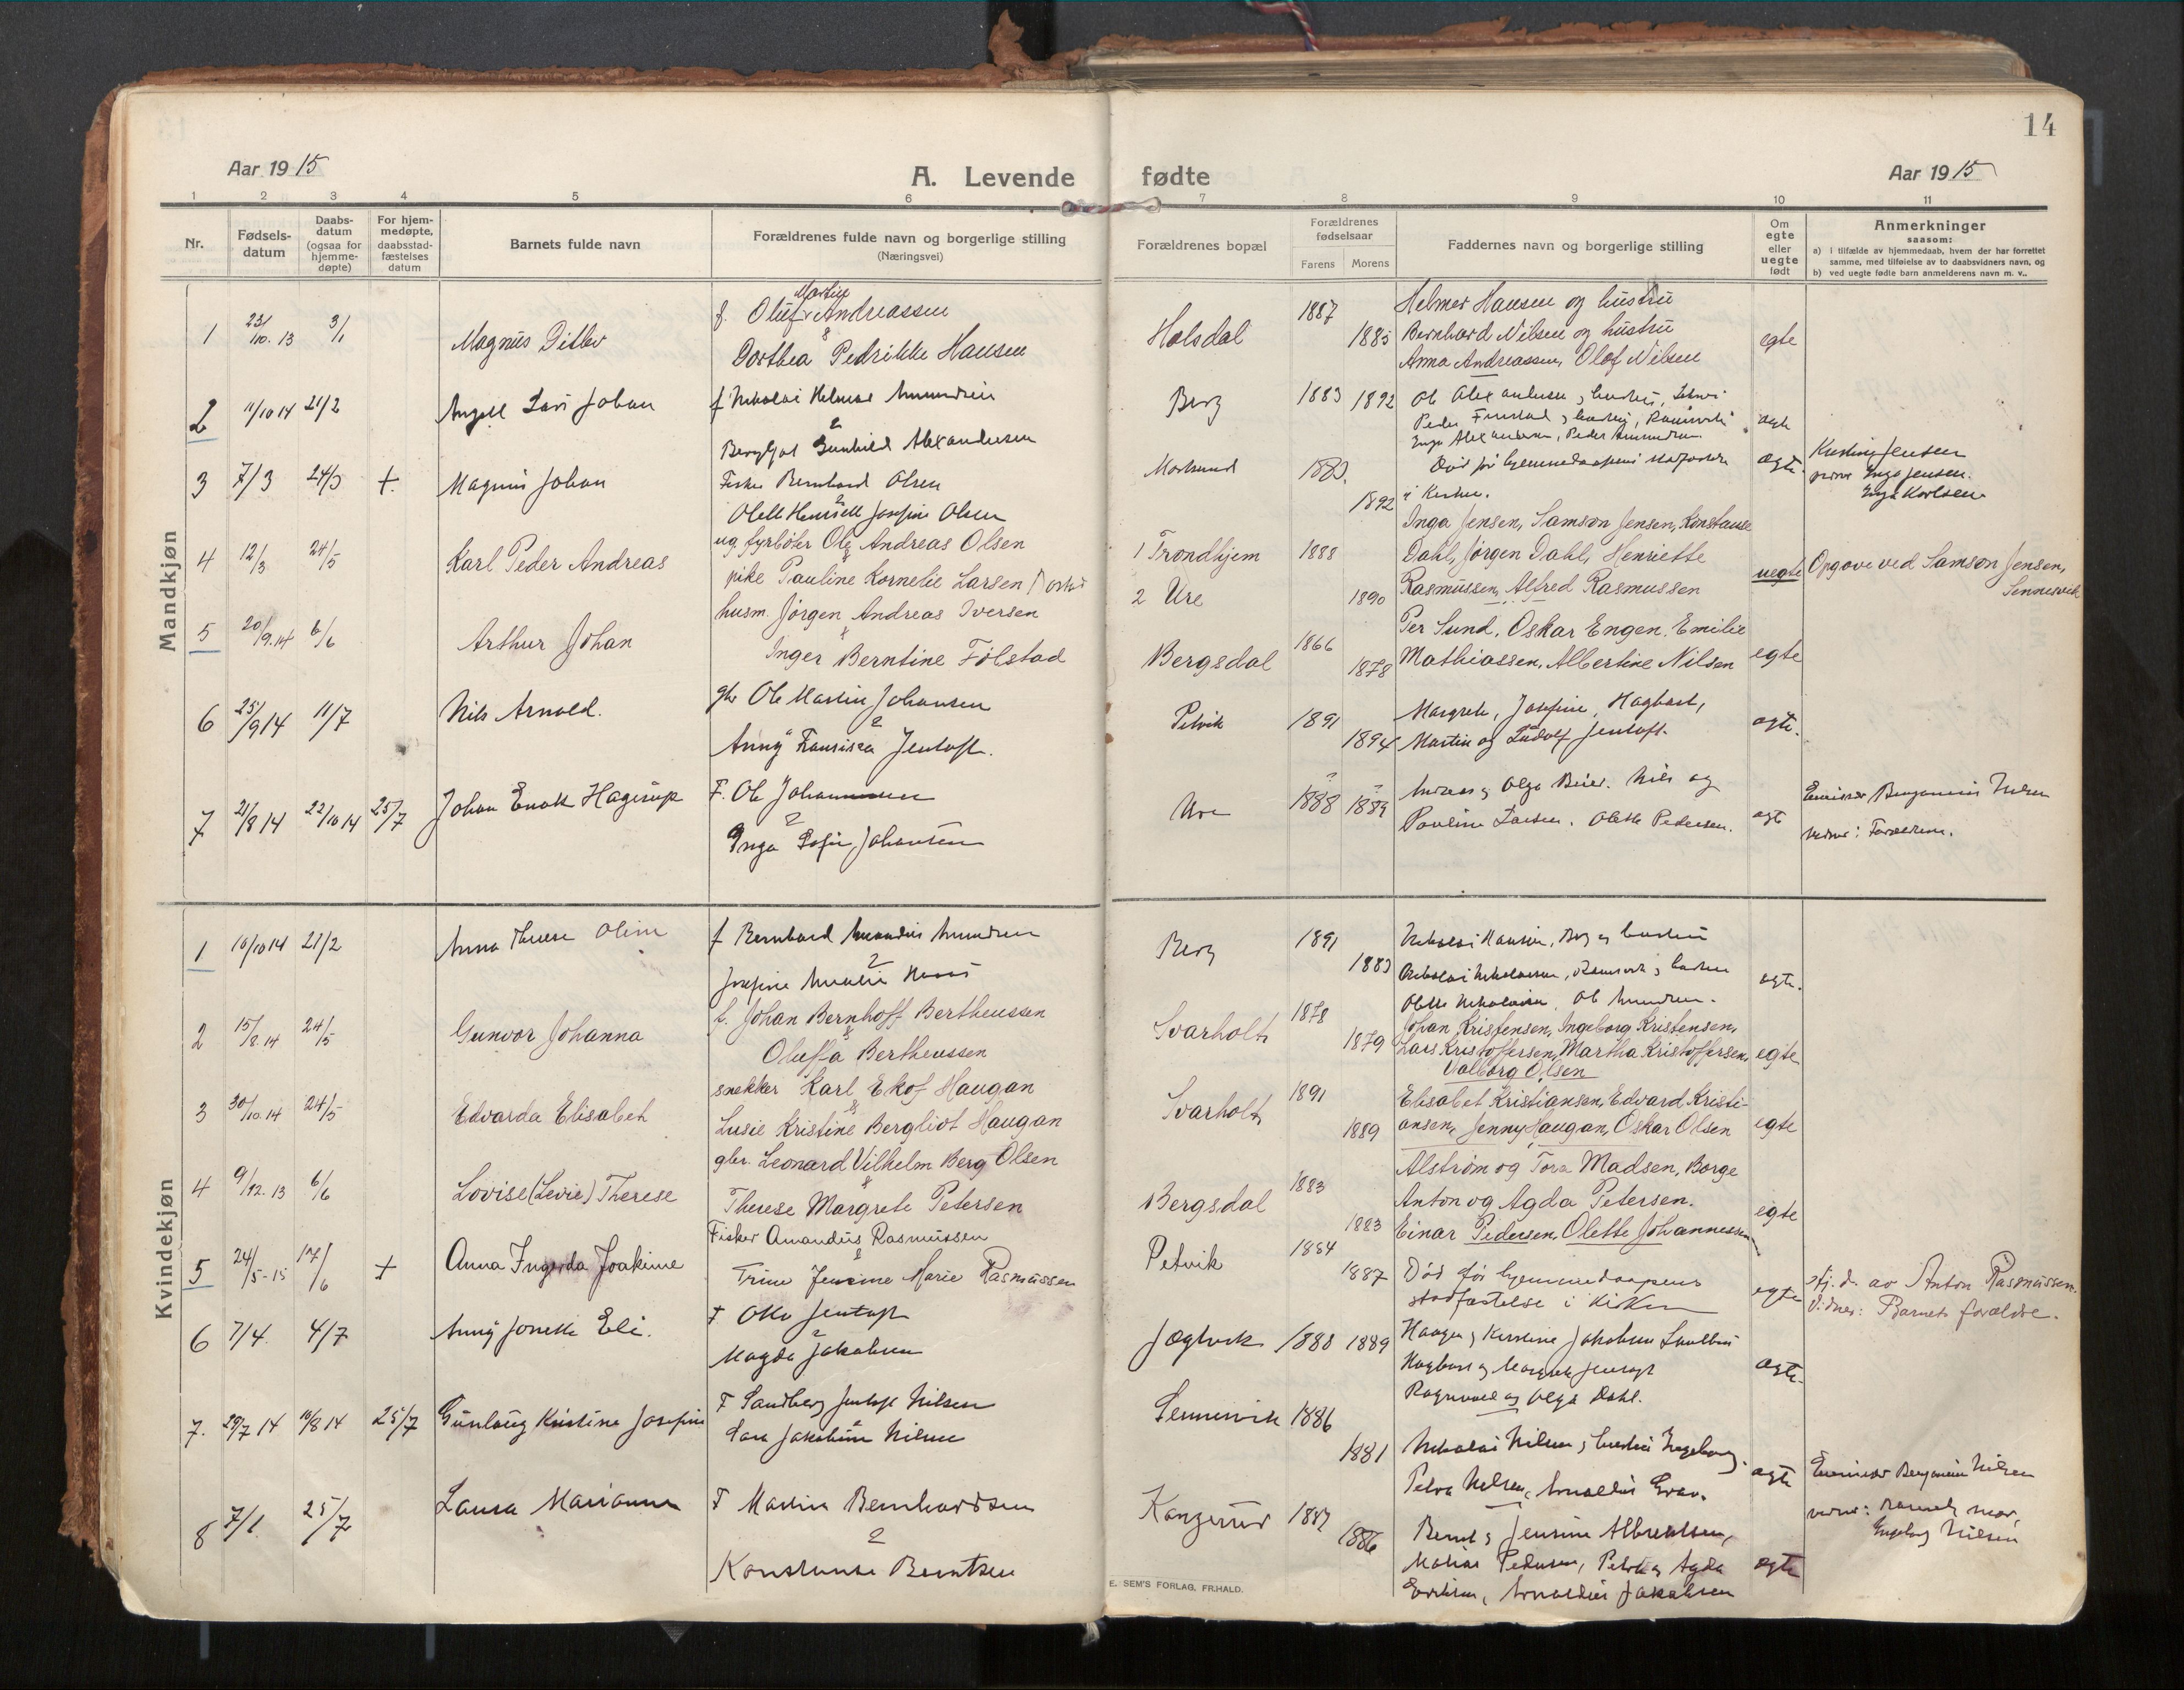 14
Aar 1915
A. Levende fødte
Aar 1915
1 2 3 4 5 6 7 8 9 10 11
Nr.
Fødsels-
datum
Daabs-
datum
(ogsaa for
hjemme-
døpte)
For hjem-
medøpte,
daabsstad-
fæstelses
datum
Barnets fulde navn
Forældrenes fulde navn og borgerlige stilling
(Næringsvei)
Forældrenes bopæl
Forældrenes
fødselsaar
Farens Morens
Faddernes navn og borgerlige stilling
Om
egte
eller
uegte
født
Anmerkninger
saasom:
a) i tilfælde av hjemmedaab, hvem der har forrettet
samme, med tilføielse av to daabsvidners navn, og
b) ved uegte fødte barn anmelderens navn m. v..
Mandkjøn
1 23/10. 13 3/1 Magnus Ditlev
f. Oluf Martin Andreassen
&
Dorthea Pedrikke Hansen
Holsdal 1887 1885
Helmer Hansen og hustru
Bernhard Nilsen og hustru
Anna Andreassen, Olof Nilsen
egte
2 11/10 14 21/2 Angell Johan
f Nikolai Amundsen
&
Gunhild Alexandersen
Berg 1883 1892
Ole Alexandersen
Peder
Inga Alexandersen, Peder Amundsen
egte
3 7/3 24/5 +. Magnus Johan
Fisker Bernhard Olsen
&
Josefine Olsen
Mortsund 1892
Død før hjemmedaapens
i Kirken.
egte.
Jensen
Inga Jensen.
Inga Karlsen
4 12/3 24/5 Karl Peder Andreas
ug. fyrbøter Ole Andreas Olsen
&
pike Pauline Kornelie Larsen
1 Trondhjem 1888
2 Ure 1890
Inga Jensen, Samson Jensen, Konstanse
Dahl, Jørgen Dahl, Henriette
Rasmussen, Alfred Rasmussen
uegte
Opgave ved Samson Jensen,
Sennesvik
5 20/9.14 6/6 Arthur Johan
husm. Jørgen Andreas Iversen
&
Inger Berntine Følstad
Bergsdal 1866 1878
Per Sund, Oskar Engen, Emilie
Mathiassen, Albertine Nilsen
egte
6 25/9 14 11/7 Nils Arnold.
gbr Ole Martin Johansen
&
Anny Fransiska Jentoft.
Petvik 1891 1894
Margrete, Josefine, Hagbart,
Martin og Ludolf Jentoft.
egte.
7 21/8 14 22/10 14 25/7 Johan Enok Hagerup
F. Ole Johannessen
&
Inga Sofie Johansen
Ure 1888 1889
Andreas og Olga Beier. Nils og
Pauline Larsen. Olette Pedersen.
egte
Emissær Benjamin Nilsen
Vidner: Forældrene.
Kvindekjøn
1 10/10 14 21/2 Anna Therese Oline
f Bernhard Amandus Amundsen
&
Josefine Amalie
Berg 1891 1883
Nikolai Hansen, Berg og hustru
Nikolai Nikolaisen, og hustru
Olette Nikolaisen. Ole Amundsen.
egte.
2 15/8.14 24/5 Gunvor Johanna
f. Johan Bernhoff Bertheussen
&
Oluffa Bertheussen
Svarholt 1878 1879
Johan Kristensen, Ingeborg Kristensen,
Lars Kristoffersen, Martha Kristoffersen,
Valborg Olsen
egte
3 30/10.14 24/5 Edvarda Elisabeth
snekker Karl Ekof Haugan
&
Lusie Kristine Bergliot Haugan
Svarholt 1891 1889
Elisabet Kristiansen, Edvard Kristi-
ansen, Jenny Haugan, Oskar Olsen
egte
4 9/12. 13 6/6 Lovise (Levie) Therese
gbr. Leonard Vilhelm Berg Olsen
&
Therese Margrete Petersen
Bergsdal 1883 1883
Alstrøm og Tora Madsen, Borge
Anton og Agda Petersen.
Einar Pedersen, Olette Johannessen
egte
5 24/5-15 17/6 + Anna Ingerda Joakime
Fisker Amandus Rasmussen
&
Trine Jensine Marie Rasmussen
Petvik 1884 1887
Død før hjemmedaapens
stadfæstelse i Kirken
egte
Hj. d. av Anton Rasmussen.
Vidner: Barnets forældre.
6 7/4. 4/7 Anny Jonette Eli.
F Otto Jentoft
&
Magda Jakobsen
Jægtvik 1888 1889
Haagen og Kirstine Jakobsen
Hagbart og Margrete Jentoft
Ragnvald og Olga Dahl.
egte.
7. 29/7 14 16/8 14 25/7 Gunlaug Kristine Josefine
F Sandberg Jentoft Nilsen
&
Sara Jakobine Nilsen
Sennesvik 1886 1881
Nikolai Nilsen og hustru Ingeborg.
Petra Nilsen, Arnoldus
egte
Emissær Benjamin Nilsen
Vidner: Barnets mor,
Ingeborg Nilsen
8 7/1. 25/7 Laura Marianne
F Martin Bernhardsen
&
Konstanse Berntsen
1882 1886
Bernt og Jensine Albrektsen,
Matias Pedersen, Petra og Agda
Arnoldus Jakobsen
egte
E. SEM'S FORLAG, FR.HALD.